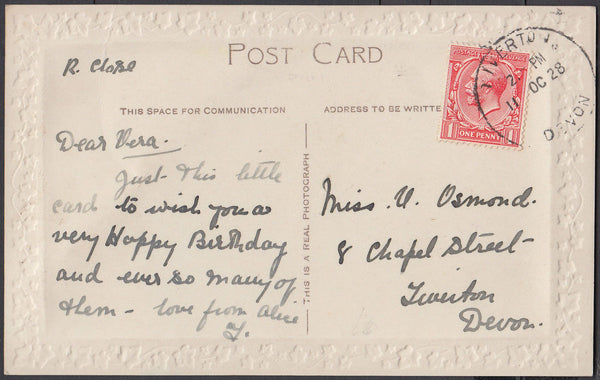 POST CARD
R. Close
THIS SPACE FOR COMMUNICATION
ADDRESS TO BE WRITTE
Dear Vera.
Just this little
card to wish you a
very Happy Birthday
and ever so many of
them - love from Alice
Y.
THIS IS A REAL PHOTOGRAPH
Miss V. Osmond.
8 Chapel Street
Tiverton
Devon.
POSTAGE REVENUE
1 ONE PENNY 1
TIVERTON
2 PM
11 OC 28
DEVON